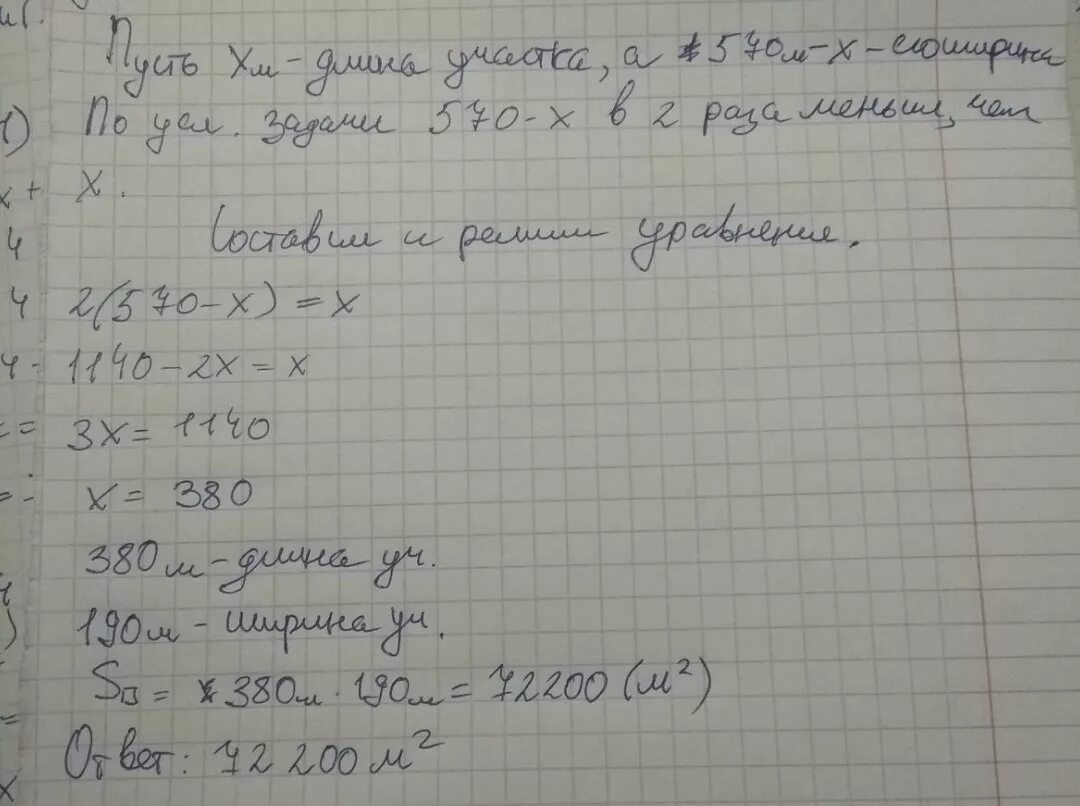 Пусть Хм - длина участка, а 570м-х - его ширина
1) По усл. задачи 570-х в 2 раза меньше, чем
х + х.
4 Составим и решим уравнение.
4 2(570-х) = х
4- 1140-2х = х
= 3х = 1140
= - х = 380
380м - длина уч.
) 190м - ширина уч.
S□ = 380м · 190м = 72200 (м²)
= Ответ: 72 200 м²
х